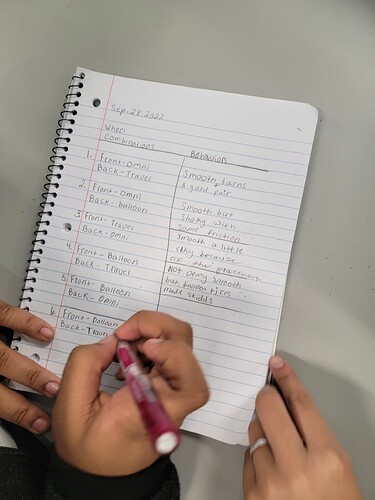 Sep. 28. 2022
Wheel
Combinations
Behaviors
1. Front-Omni
Back-Travel
Smooth turns
a good pair
2. Front-Omni
Back-balloon
Smooth but
shaky with
some friction
3. Front-Travel
Back-omni
smooth a little
because
of the placement
4. Front-Balloon
Back-Travel
Not smooth
but tires
made skidds
5. Front-Balloon
Back-Omni
6. Front-balloon
Back-Travel